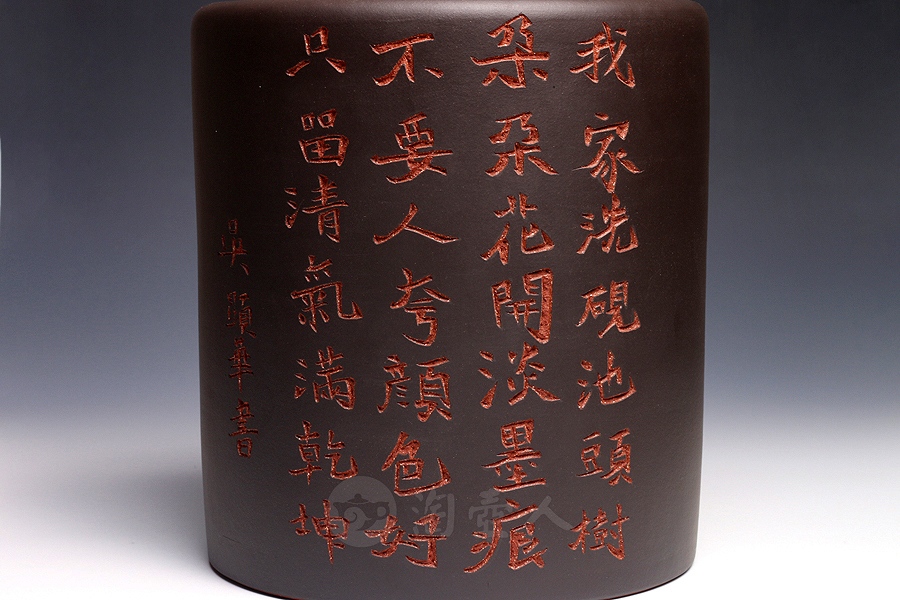 我家洗硯池頭樹
朵朵花開淡墨痕
不要人夸顏色好
只留清氣滿乾坤
吳顕華書
淘壶人